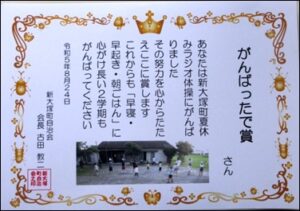 がんばったで賞
さん
あなたは新大塚町夏休
みラジオ体操にがんば
りました
その努力を心からたた
えここに賞します
これからも「早寝・
早起き・朝ごはん」に
心がけ長い2学期も
がんばってください
令和5年8月24日
新大塚町自治会
会長 古田 敦二